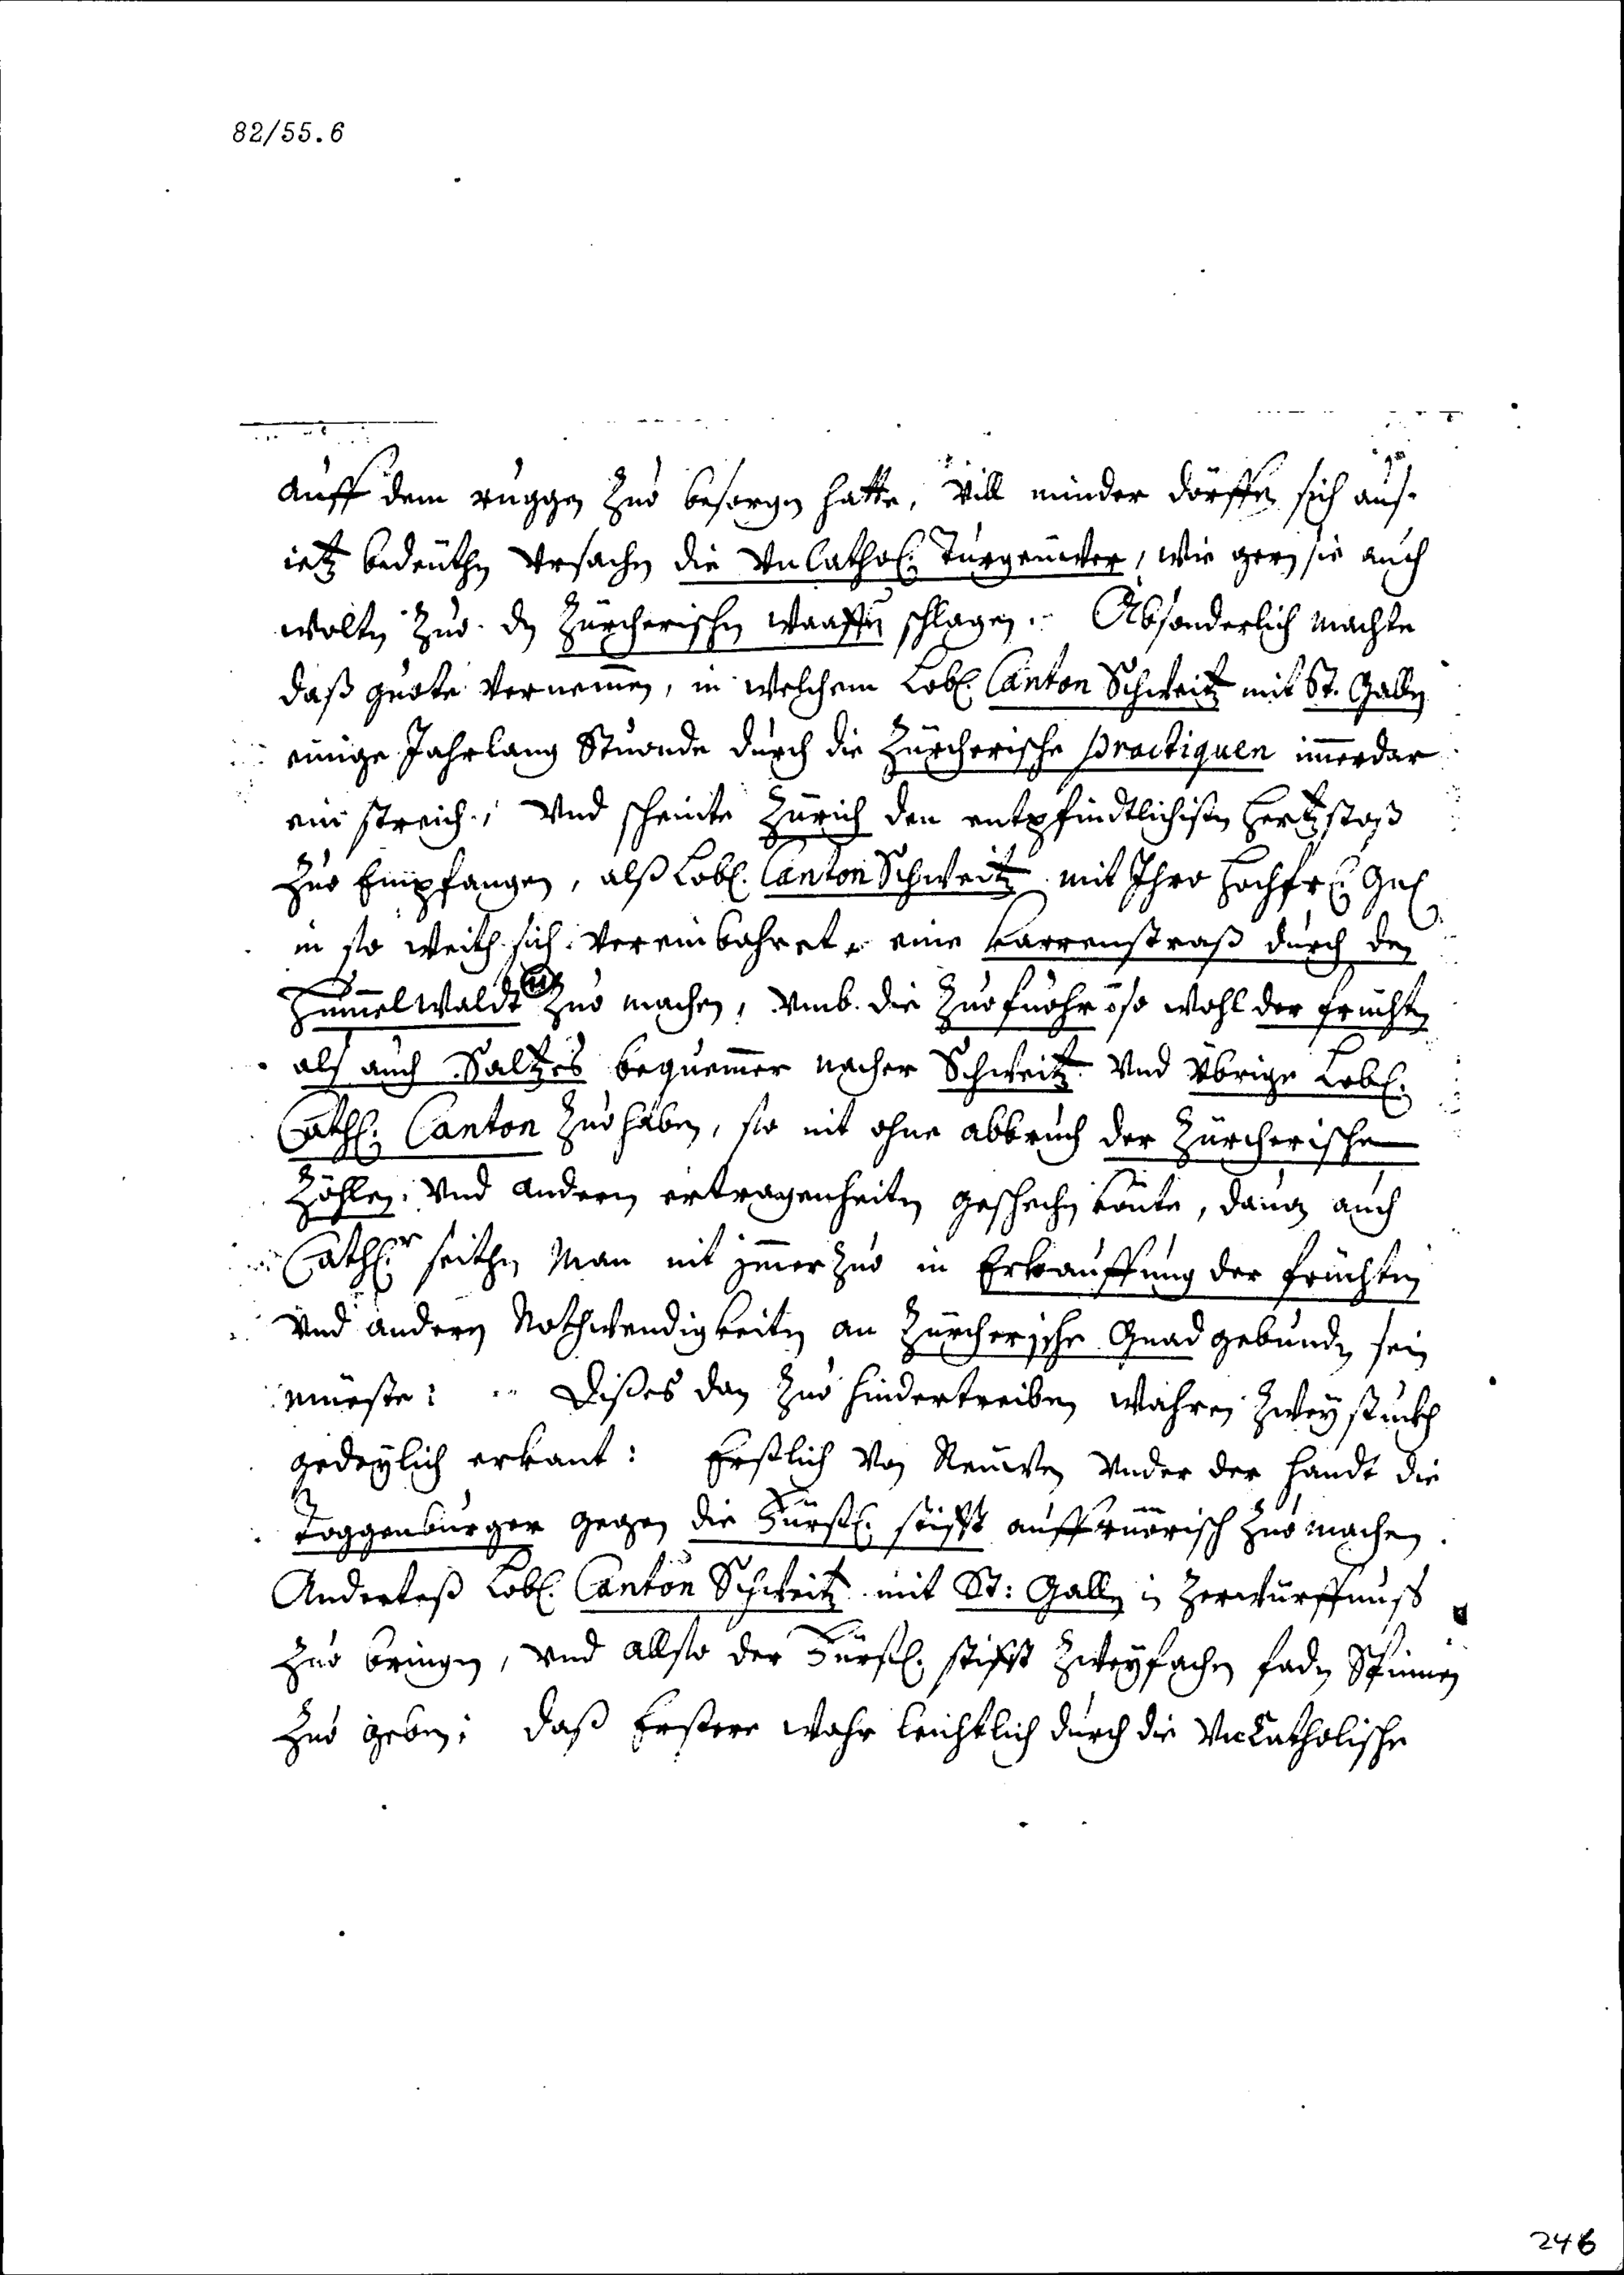 82/55.6
auff dem ruggen zuo besorgen hatte, vill minder dörffen sich aus
ietz bedeuthen ursachen die UnCathol: Turgeüwer, wie gern sie auch
wolten zuo den Zürcherischen waaffen schlagen. Absonderlich machte
daß guote vernemmen, in welchem Lobl. Canton Schweitz mit St. Gallen
einige Jahrlang stuonde durch die Zürcherische practiquen immerdar
ein streich, und scheinte Zürich den entpfindtlichisten Hertzstoß
zuo Empfangen, alß Lobl. Canton Schweitz mit Ihro Hochfrl: Gn.
in so weith sich vereinbahret, eine karrenstraß durch den
Hummelwaldt zuo machen, umb die Zuofuohr so wohl der früchten
als auch Saltzes bequemer nacher Schweitz und übrige Lobl.
Cathl: Canton zuo haben, so nit ohne abbruch der Zürcherischen
Zöhlen und andern ertragenheiten geschechen könte, danen auch
Cathl:r seithen Man nit jmmerzuo in Erkauffung der früchten
und andern Nothwendigkeiten an Zürcherische Gnad gebunden sein
müeste: Dißes dan zuo hindertreiben wahren zwey stuckh
gedeylich erkant: Erstlich von Neüwen under der handt die
Toggenburger gegen die Fürstl. stifft auffruörisch zuo machen.
Anderteß Lobl. Canton Schweitz mit St: Gallen in zerwürffnuß
zuo bringen, und allso der Fürstl. stifft zweyfachen faden Spinnen
zuo geben: daß Erstere wahr leichtlich durch die UnCatholische
246